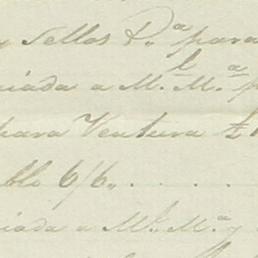 y Sellos P.ª para
iada a M.l M.ª p
para Ventura £
blo 6/6 . . . .
iada a M.l M.ª y